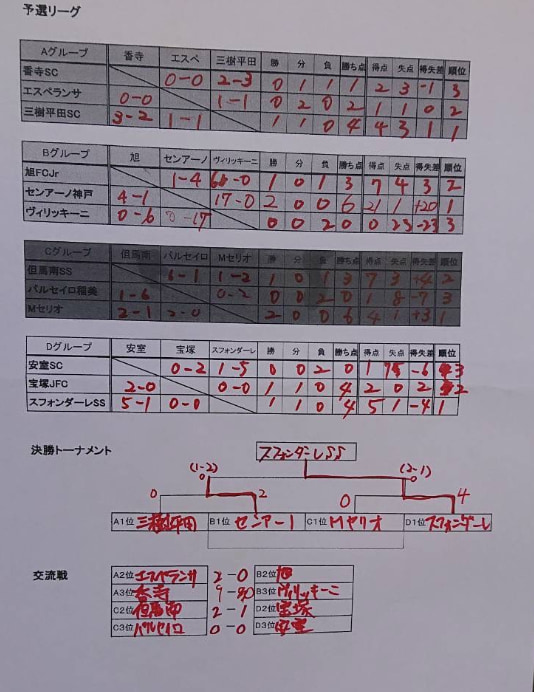 予選リーグ
Aグループ 香寺 エスペ 三樹平田 勝 分 負 勝ち点 得点 失点 得失差 順位
香寺SC 0-0 2-3 0 1 1 1 2 3 -1 3
エスペランサ 0-0 1-1 0 2 0 2 1 1 0 2
三樹平田SC 3-2 1-1 1 1 0 4 4 3 1 1
Bグループ 旭 センアーノ ヴィリッキーニ 勝 分 負 勝ち点 得点 失点 得失差 順位
旭FCJr 1-4 6-0 1 0 1 3 7 4 3 2
センアーノ神戸 4-1 17-0 2 0 0 6 21 1 +20 1
ヴィリッキーニ 0-6 0-17 0 0 2 0 0 23 -23 3
Cグループ 但馬南 パルセイロ Mセリオ 勝 分 負 勝ち点 得点 失点 得失差 順位
但馬南SS 6-1 1-2 1 0 1 3 7 3 +4 2
パルセイロ稲美 1-6 0-2 0 0 2 0 1 8 -7 3
Mセリオ 2-1 2-0 2 0 0 6 4 1 +3 1
Dグループ 安室 宝塚 スフォンダーレ 勝 分 負 勝ち点 得点 失点 得失差 順位
安室SC 0-2 1-5 0 0 2 0 1 -6 3
宝塚JFC 2-0 0-0 1 1 0 4 2 0 2 2
スフォンダーレSS 5-1 0-0 1 1 0 4 5 1 -4 1
決勝トーナメント
スフォンダーレSS
(1-2) (2-1)
0 2 0 4
A1位 三樹平田 B1位 センアーノ C1位 Mセリオ D1位 スフォンダーレ
交流戦
A2位 エスペランサ 2-0 B2位 旭
A3位 香寺 B3位 ヴィリッキーニ
C2位 但馬南 2-1 D2位 宝塚
C3位 パルセイロ 0-0 D3位 安室